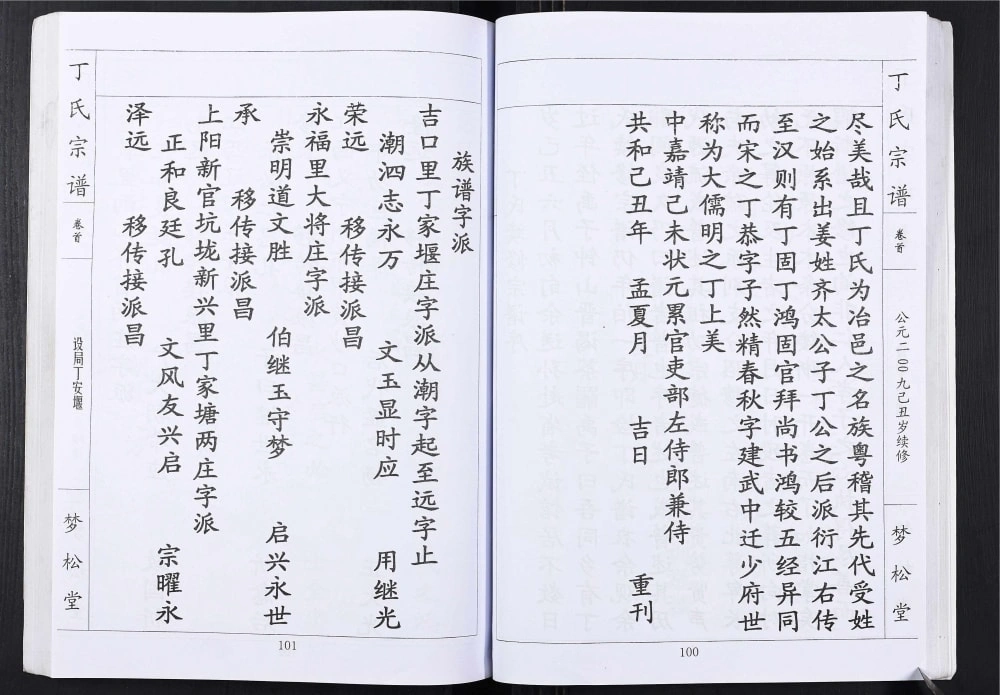 丁氏宗谱
卷首
公元二00九己丑岁续修
梦松堂
尽美哉且丁氏为冶邑之名族粤稽其先代受姓
之始系出姜姓齐太公子丁公之后派衍江右传
至汉则有丁固丁鸿固官拜尚书鸿较五经异同
而宋之丁恭字子然精春秋字建武中迁少府世
称为大儒明之丁上美
中嘉靖己未状元累官吏部左侍郎兼侍
共和己丑年 孟夏月 吉日 重刊
100
族谱字派
吉口里丁家堰庄字派从潮字起至远字止
潮泗志永万 文玉显时应 用继光
荣远 移传接派昌
永福里大将庄字派
崇明道文胜 伯继玉守梦 启兴永世
承 移传接派昌
上阳新官坑垅新兴里丁家塘两庄字派
正和良廷孔 文风友兴启 宗曜永
泽远 移传接派昌
丁氏宗谱
卷首
设局丁安堰
梦松堂
101